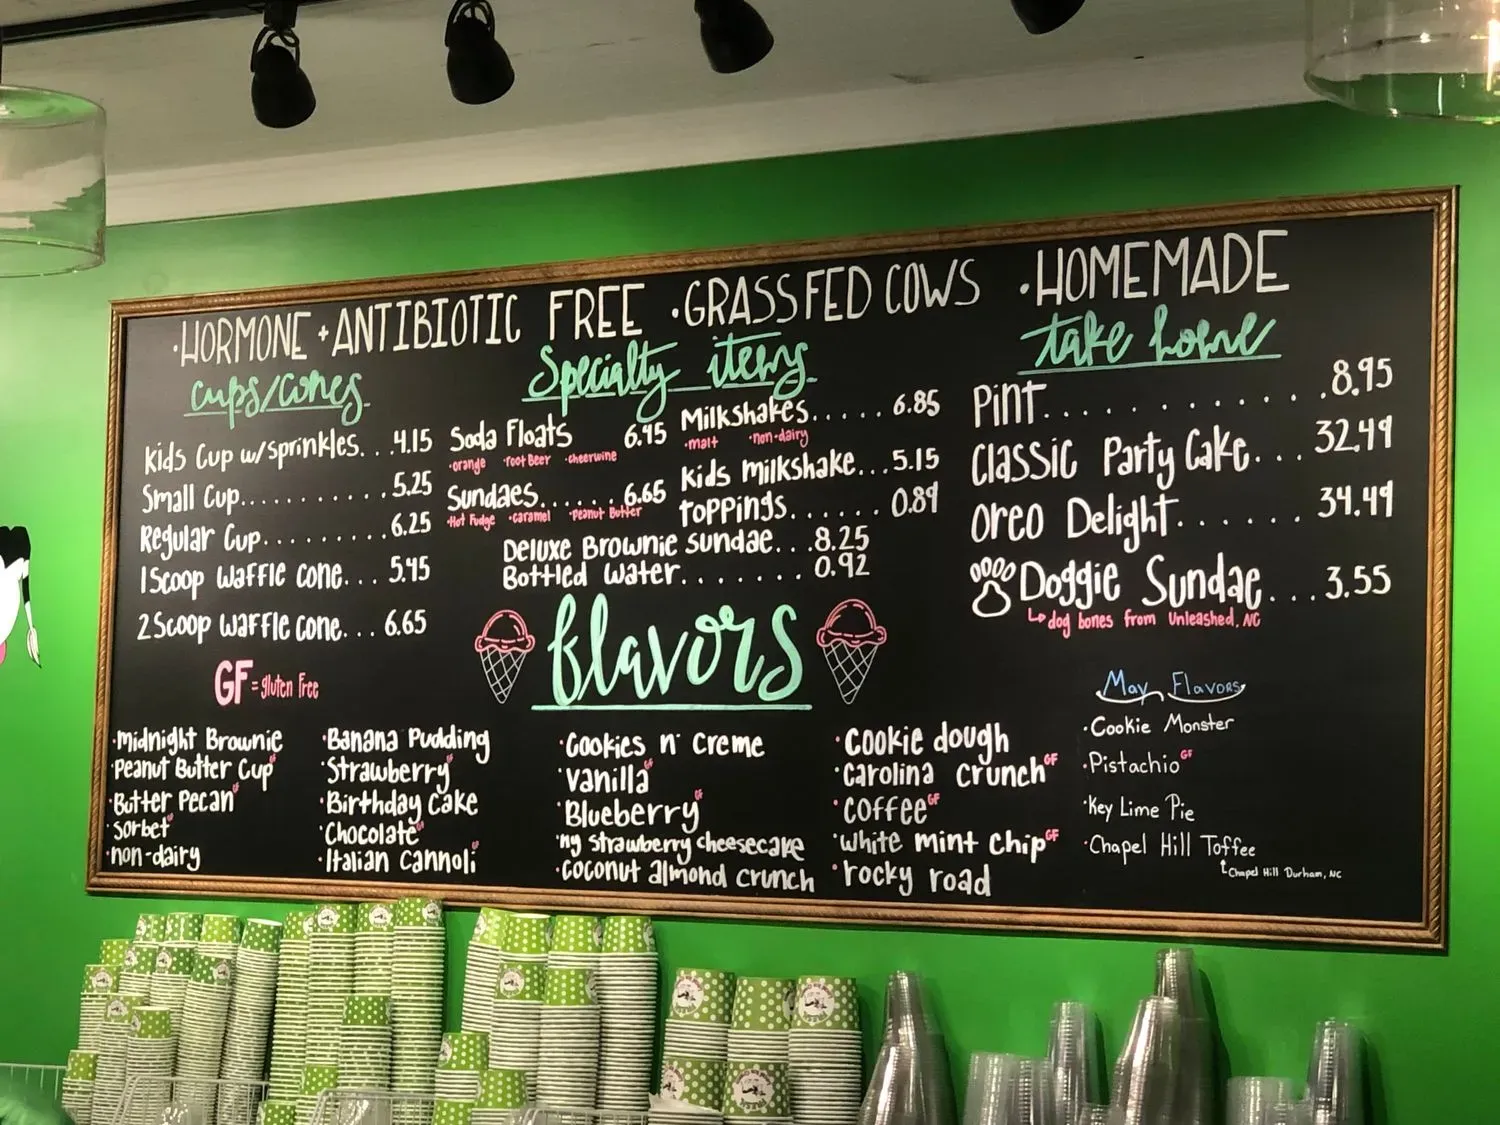 ·HORMONE + ANTIBIOTIC FREE ·GRASS FED COWS ·HOMEMADE
cups/cones
Kids Cup w/sprinkles...4.15
Small Cup..........5.25
Regular Cup.........6.25
1 Scoop waffle cone...5.45
2 Scoop waffle cone...6.65
GF = gluten free
Specialty items
Soda Floats 6.45
·orange ·root Beer ·cheerwine
Sundaes......6.65
·Hot Fudge ·caramel ·Peanut Butter
Milkshakes.....6.85
·malt ·non-dairy
Kids milkshake...5.15
toppings......0.89
Deluxe Brownie sundae...8.25
Bottled water.......0.92
take home
Pint............8.95
Classic Party Cake...32.49
Oreo Delight......34.49
Doggie Sundae...3.55
dog bones from Unleashed, NC
flavors
·midnight Brownie
·Peanut Butter Cup GF
·Butter Pecan GF
·Sorbet GF
·non-dairy
·Banana Pudding
·Strawberry GF
·Birthday cake
·Chocolate GF
·Italian Cannoli GF
·Cookies n' creme
·vanilla GF
·Blueberry GF
·ny strawberry cheesecake
·coconut almond crunch
·cookie dough
·carolina crunch GF
·coffee GF
·white mint chip GF
·rocky road
May Flavors
·Cookie Monster
·Pistachio GF
·Key Lime Pie
·Chapel Hill Toffee
Chapel Hill Durham, NC